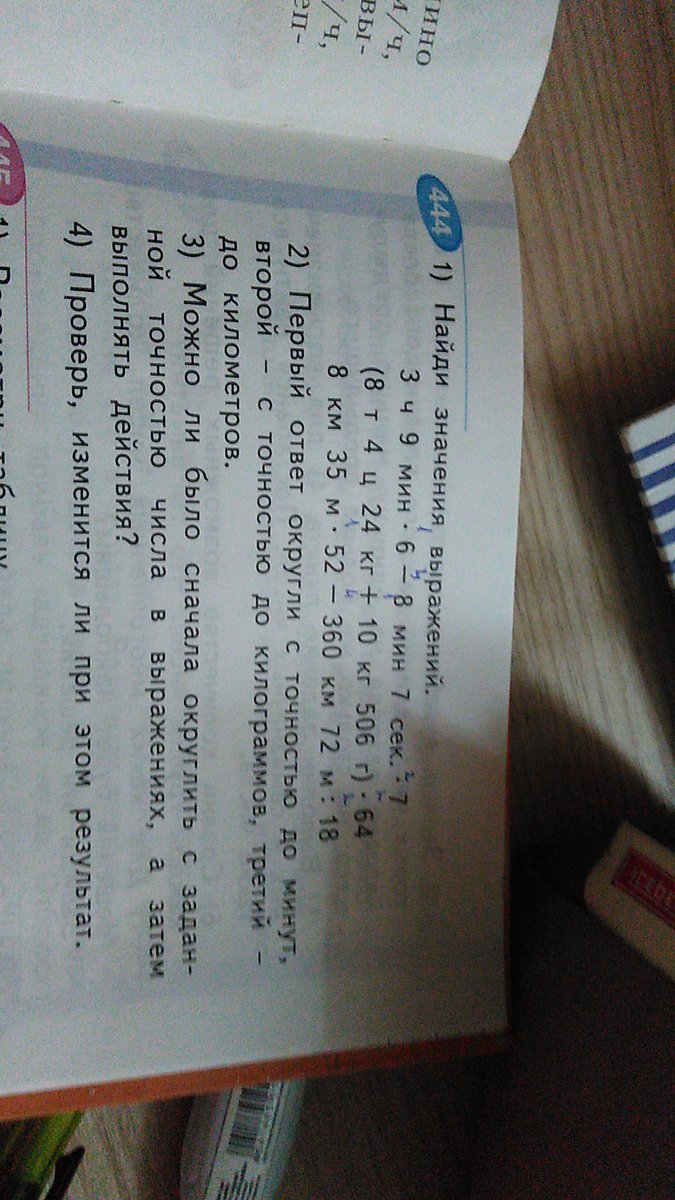 лино
м/ч,
вы-
/ч,
еп-
444 1) Найди значения выражений.
3 ч 9 мин · 6 – 8 мин 7 сек. : 7
(8 т 4 ц 24 кг + 10 кг 506 г) · 64
8 км 35 м · 52 – 360 км 72 м : 18
2) Первый ответ округли с точностью до минут,
второй – с точностью до килограммов, третий –
до километров.
3) Можно ли было сначала округлить с задан-
ной точностью числа в выражениях, а затем
выполнять действия?
4) Проверь, изменится ли при этом результат.
445 1) Рассмотри таблицу